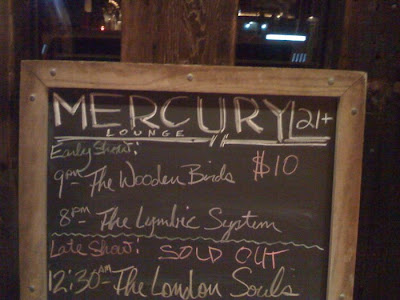 MERCURY 21+
LOUNGE
Early Show: $10
9pm- The Wooden Birds
8pm- The Lymbic System
Late Show: SOLD OUT
12:30AM- The London Souls